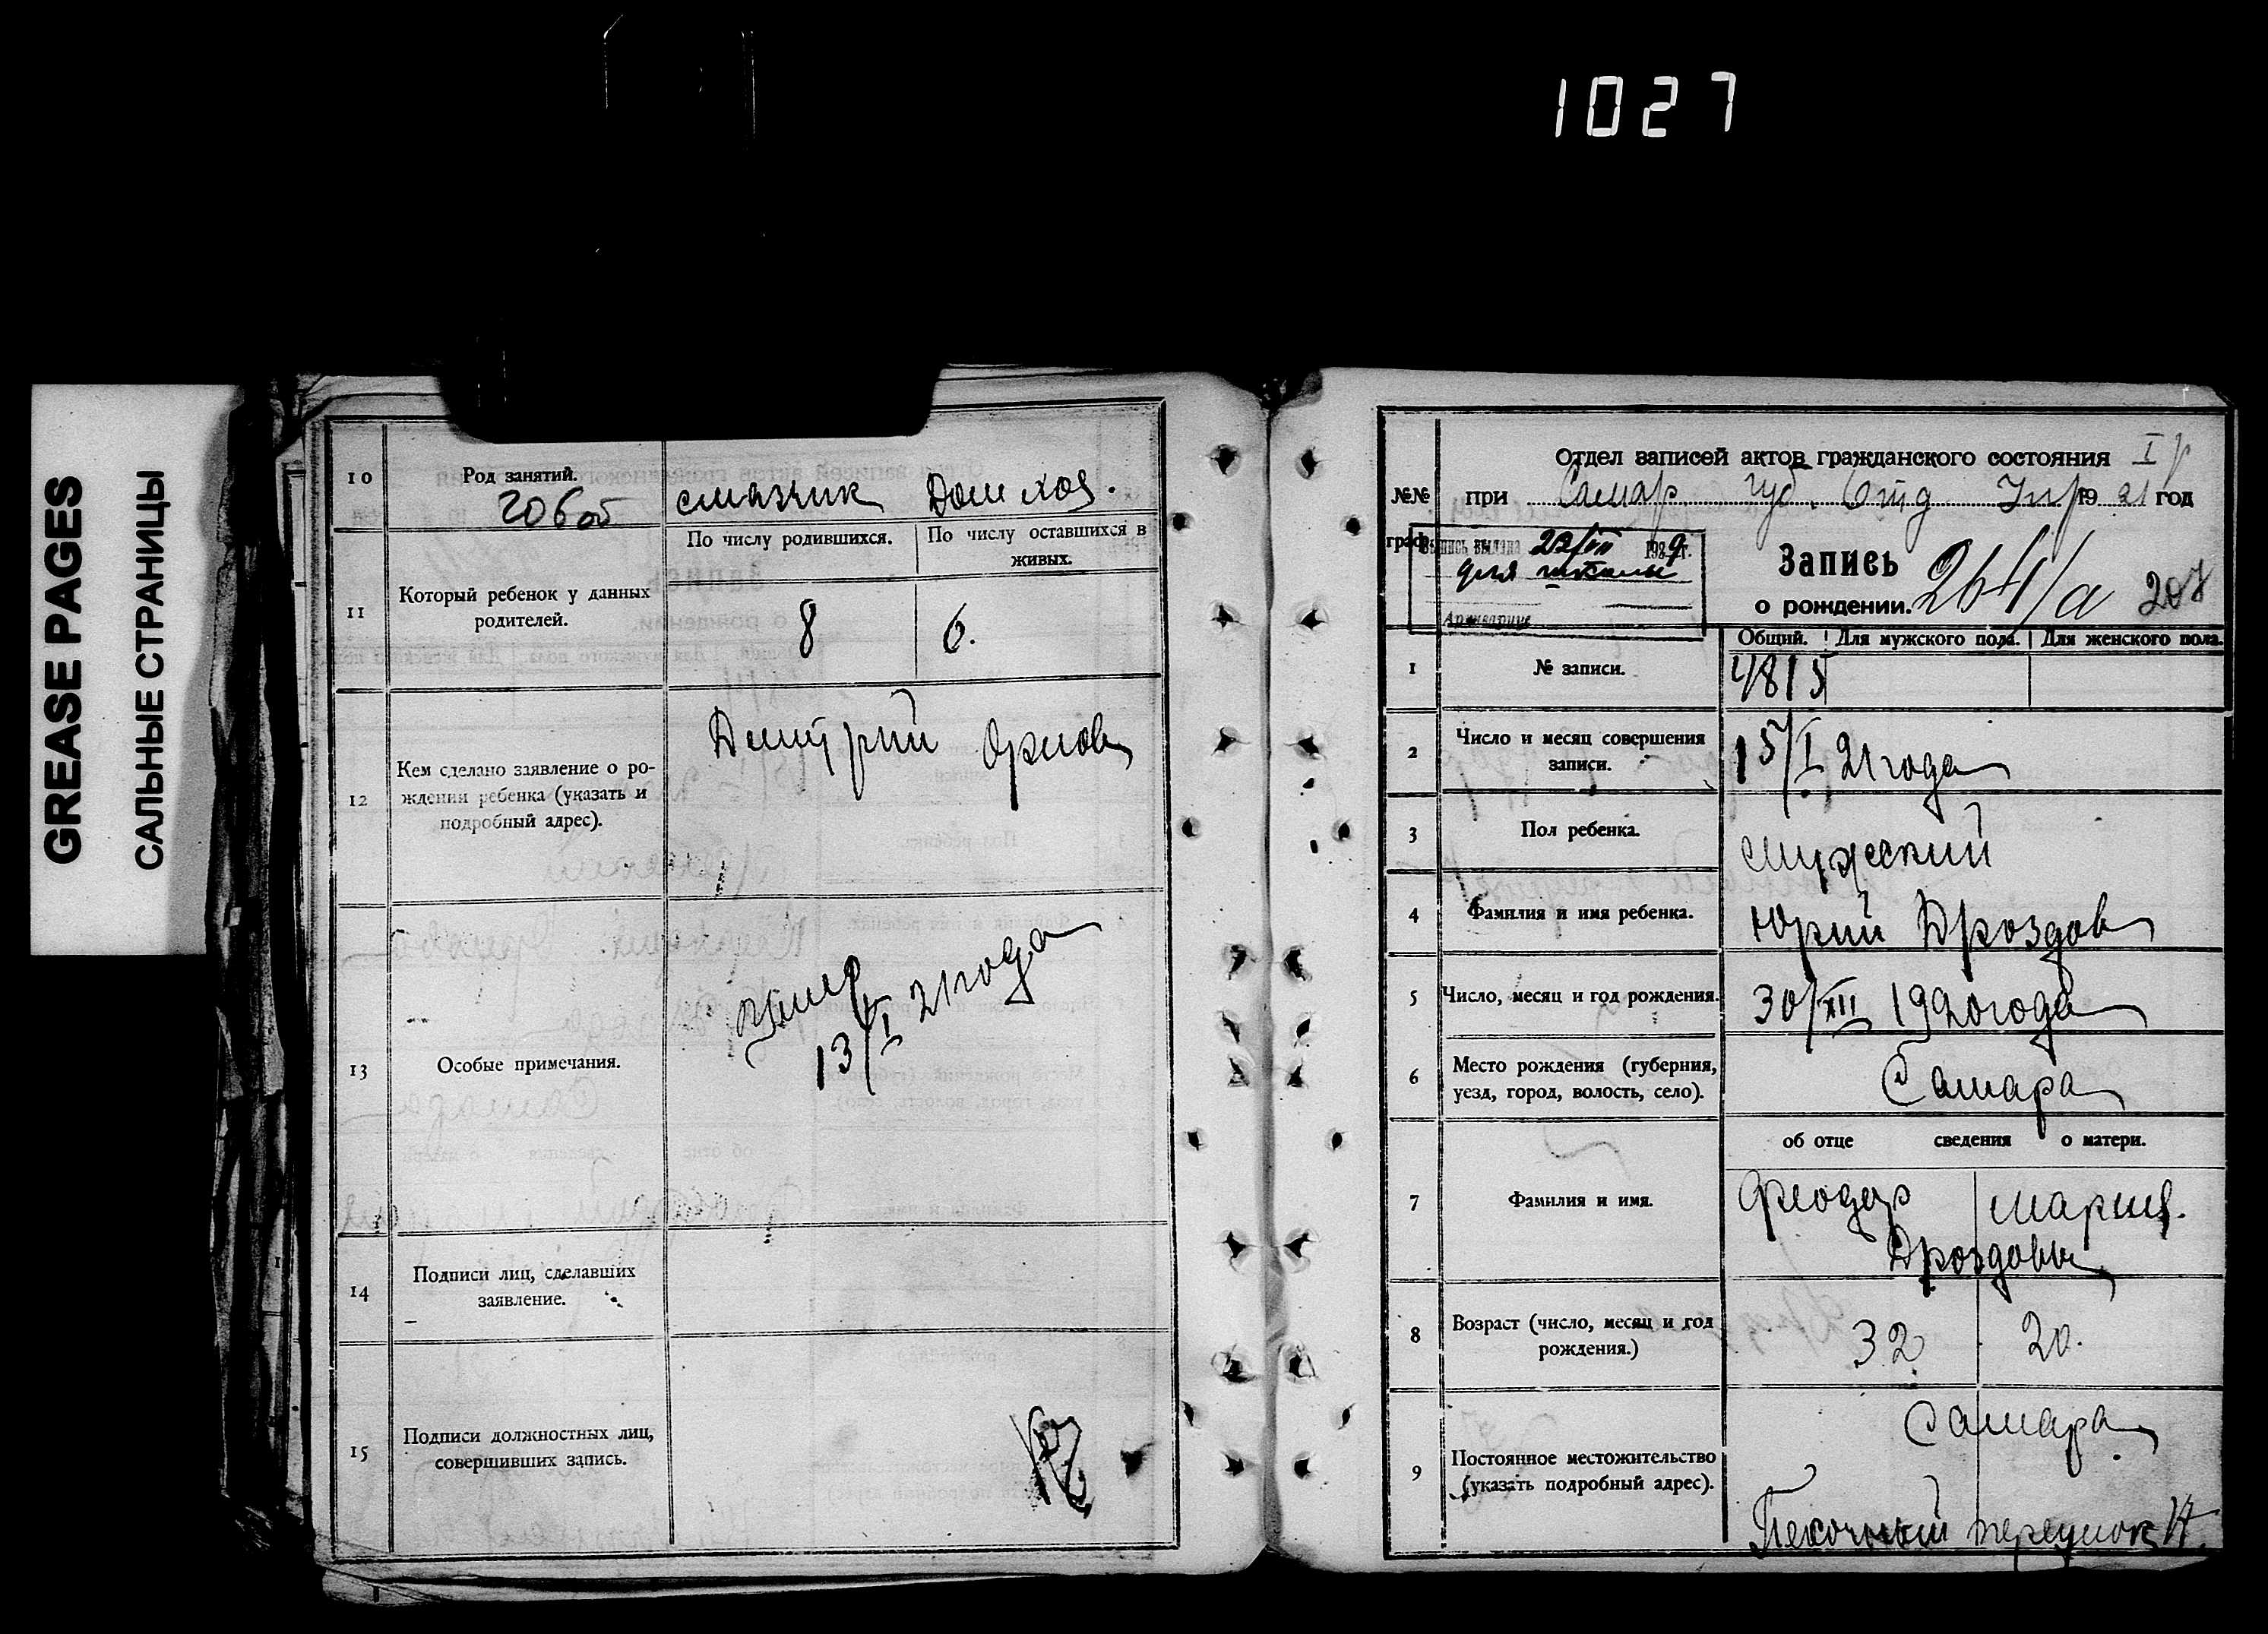 1027
GREASE PAGES
САЛЬНЫЕ СТРАНИЦЫ
10
Род занятий.
смазчик Дом хоз.
11
Который ребенок у данных
родителей.
По числу родившихся.
По числу оставшихся в
живых.
8
6.
12
Кем сделано заявление о ро-
ждении ребенка (указать и
подробный адрес).
Дмитрий Орлов
13
Особые примечания.
умер
13/I 21 года
14
Подписи лиц, сделавших
заявление.
15
Подписи должностных лиц,
совершивших запись.
Отдел записей актов гражданского состояния I р
№№
граф
при Самар губ. Отд Упр 1921 год
выпись выдана 22/VII 1989 г.
для школы
Архивариус
Запись
о рождении. 264/а 208
Общий. Для мужского пола. Для женского пола.
1
№ записи.
4815
2
Число и месяц совершения
записи.
15/I 21 года
3
Пол ребенка.
мужеский
4
Фамилия и имя ребенка.
Юрий Дроздов
5
Число, месяц и год рождения.
30/XII 1920 года
6
Место рождения (губерния,
уезд, город, волость, село).
Самара
об отце сведения о матери.
7
Фамилия и имя.
Феодор Мария.
Дроздовы
8
Возраст (число, месяц и год
рождения.)
32 20.
9
Постоянное местожительство
(указать подробный адрес).
Самара
переулок